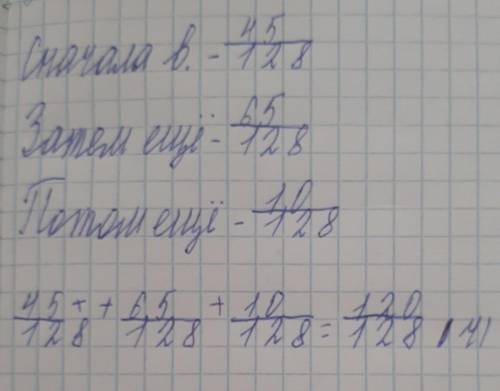 Сначала в. - 45/128
Затем ещё - 65/128
Потом ещё - 10/128
45/128 + + 65/128 + 10/128 = 120/128